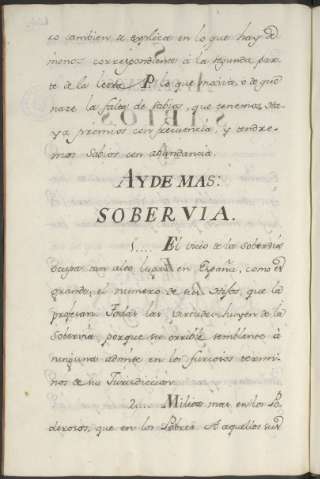 to tambien se explica en lo que hay de
menos correspondiente á la segunda par-
te de la
nace la falta de Sabios, que tenemos,
ya premios con frecuencia, y tendre-
mos Sabios con abundancia.
AY DE MAS:
SOBERVIA.
1.... El vicio de la sobervia
ocupa tan alto lugar en España, como es
grande, el numero de sus Hijos, que la
profesan. Todas las virtudes huyen de la
Sobervia porque su orrible semblante á
ninguna admite en los furiosos termi-
nos de su Jurisdiccion.
2.... Milita mas en los Po-
derosos, que en los Pobres. A aquellos